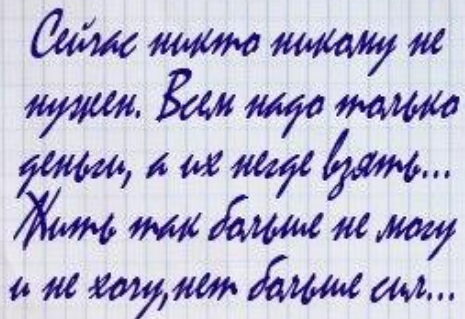 Сейчас никто никому не
нужен. Всем надо только
деньги, а их негде взять...
Жить так больше не могу
и не хочу, нет больше сил...